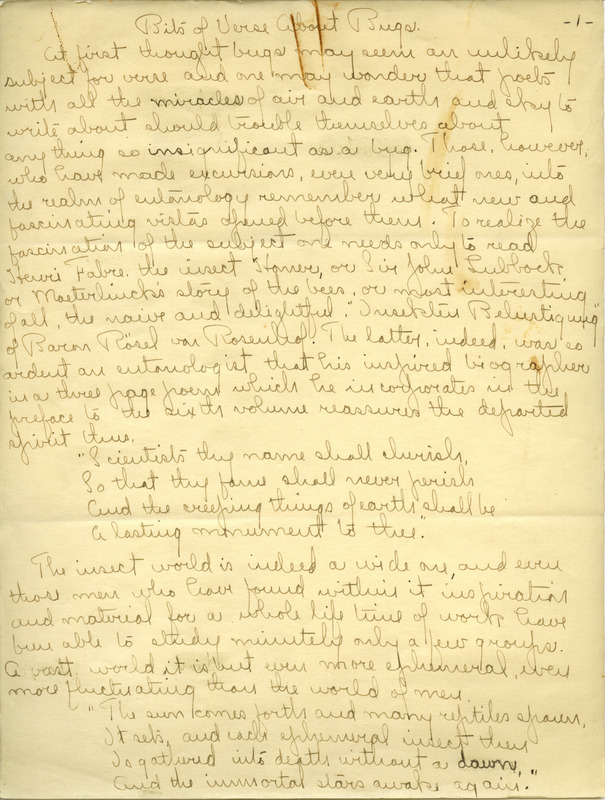 Bits of Verse About Bugs.
-1-
At first thought bugs may seem an unlikely
subject for verse and one may wonder that poets
with all the miracles of air and earth and sky to
write about should trouble themselves about
anything so insignificant as a bug. Those, however,
who have made excursions, even very brief ones, into
the realm of entomology remember what new and
fascinating vistas opened before them. To realize the
fascination of the subject one needs only to read
Henri Fabre, the insect Homer, or Sir John Lubbock,
or Maeterlinck's story of the bees, or most interesting
of all, the naive and delightful, "Insekten Belustigung"
of Baron Rösel von Rosenhof. The latter, indeed, was so
ardent an entomologist that his inspired biographer
in a three page poem which he incorporates in the
preface to the sixth volume reassures the departed
spirit thus.
"Scientists thy name shall cherish,
So that thy fame shall never perish
And the creeping things of earth shall be
A lasting monument to thee".
The insect world is indeed a wide one, and even
those men who have found within it inspiration
and material for a whole life time of work have
been able to study minutely only a few groups.
A vast world it is but even more ephemeral, even
more fluctuating than the world of men.
"The sun comes forth and many reptiles spawn,
It sets, and each ephemeral insect then
Is gathered into death without a dawn,
And the immortal stars awake again."